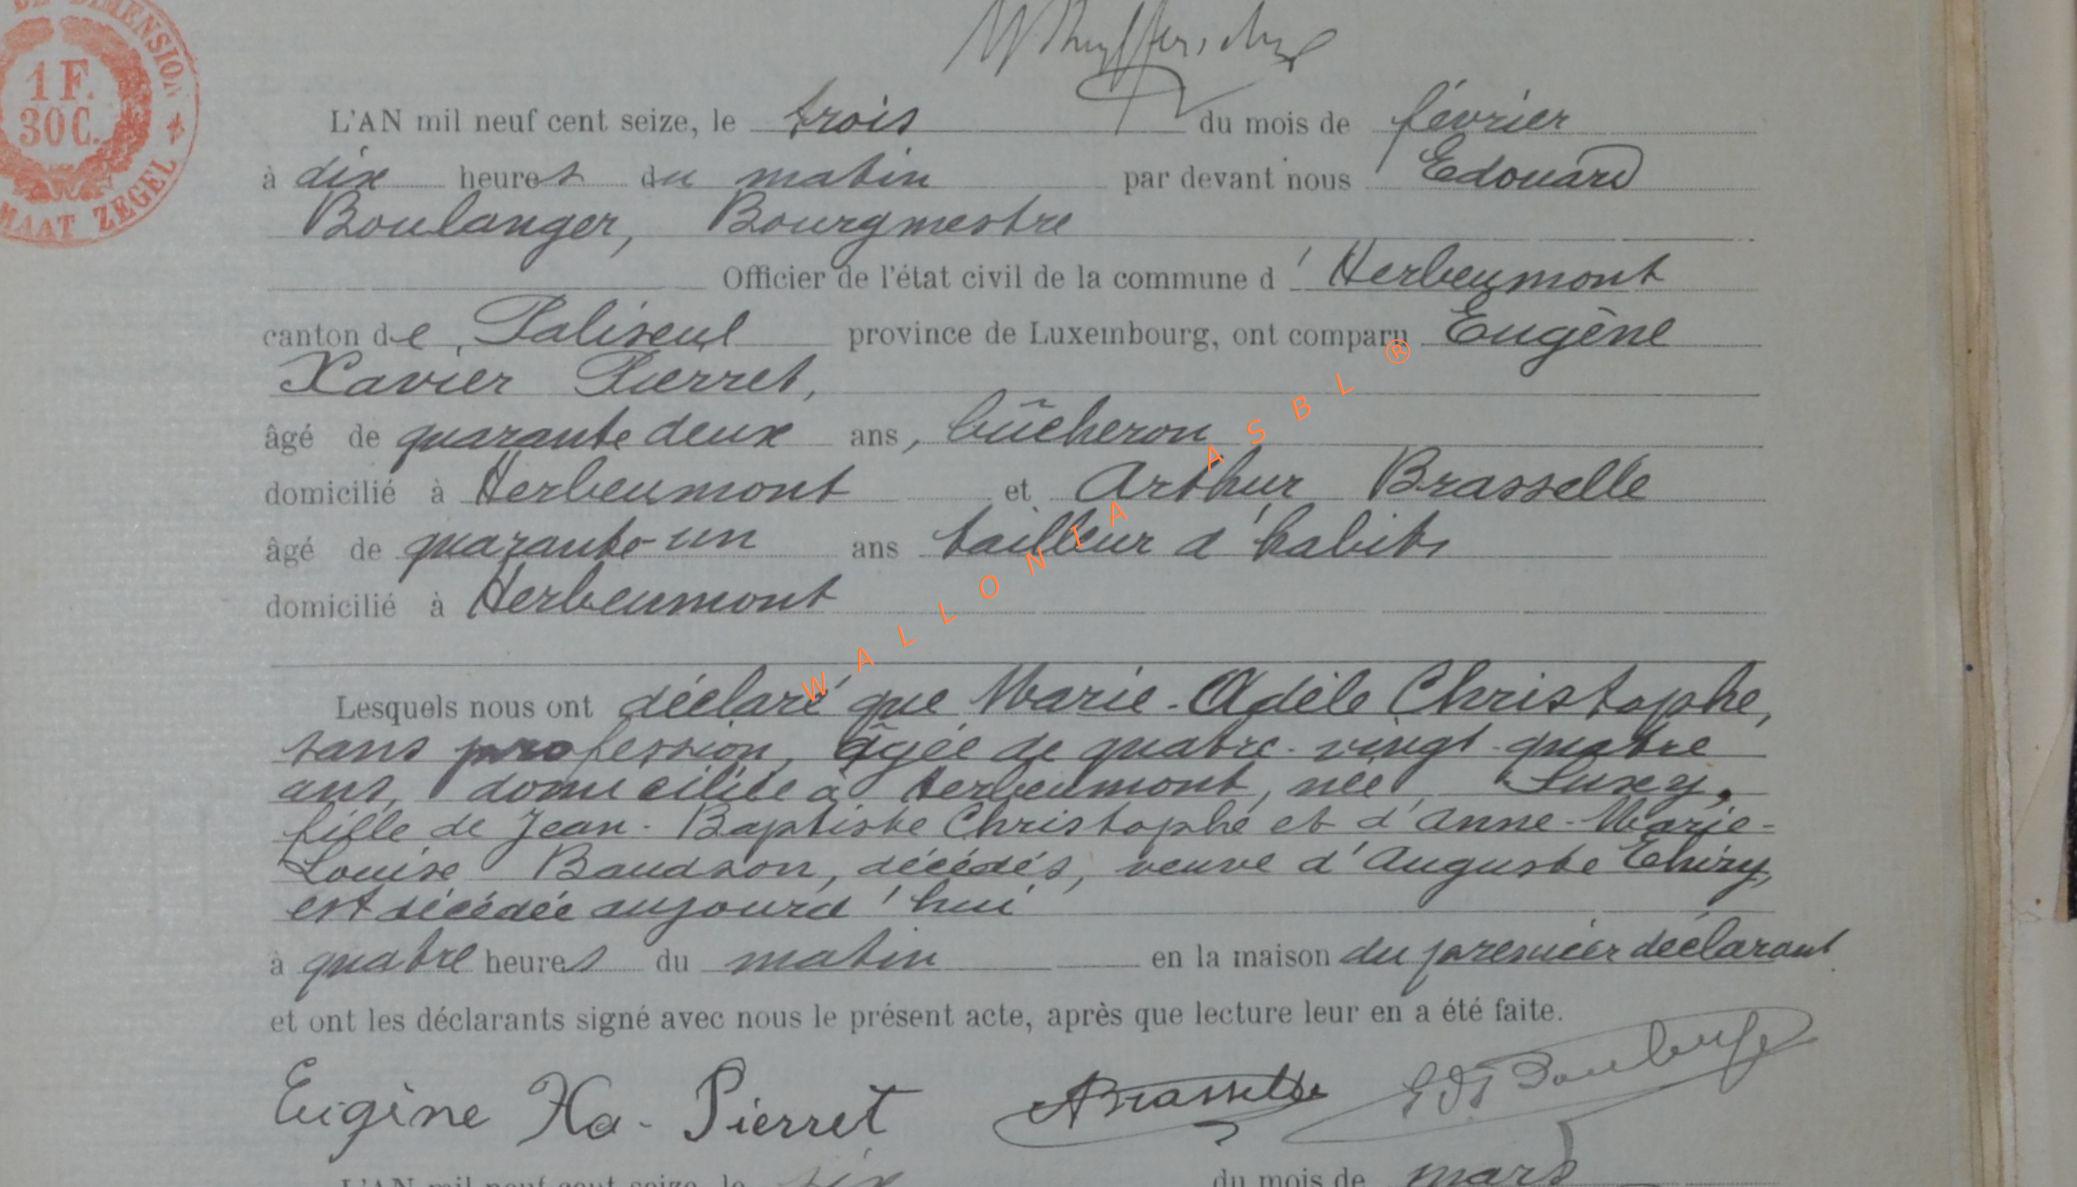 DIMENSION
1 F.
30 C.
MAAT ZEGEL
L'AN mil neuf cent seize, le trois du mois de février
à dix heures du matin par devant nous Edouard
Boulanger, Bourgmestre
Officier de l'état civil de la commune d'Herbeumont
canton de Paliseul province de Luxembourg, ont comparu Eugène
Xavier Pierret,
âgé de quarante deux ans, bûcheron
domicilié à Herbeumont et Arthur Brasselle
âgé de quarante-un ans tailleur d'habits
domicilié à Herbeumont
Lesquels nous ont déclaré que Marie-Adèle Christophe,
sans profession, âgée de quatre-vingt-quatre
ans, domiciliée à Herbeumont, née Suxy,
fille de Jean-Baptiste Christophe et d'Anne-Marie-
Louise Baudson, décédés, veuve d'Auguste Thiry,
est décédée aujourd'hui
à quatre heures du matin en la maison du premier déclarant
et ont les déclarants signé avec nous le présent acte, après que lecture leur en a été faite.
Eugène Xa-Pierret ABrasselle Ed Boulanger
L'AN mil neuf cent seize, le six du mois de mars
WALLONIA ASBL ®